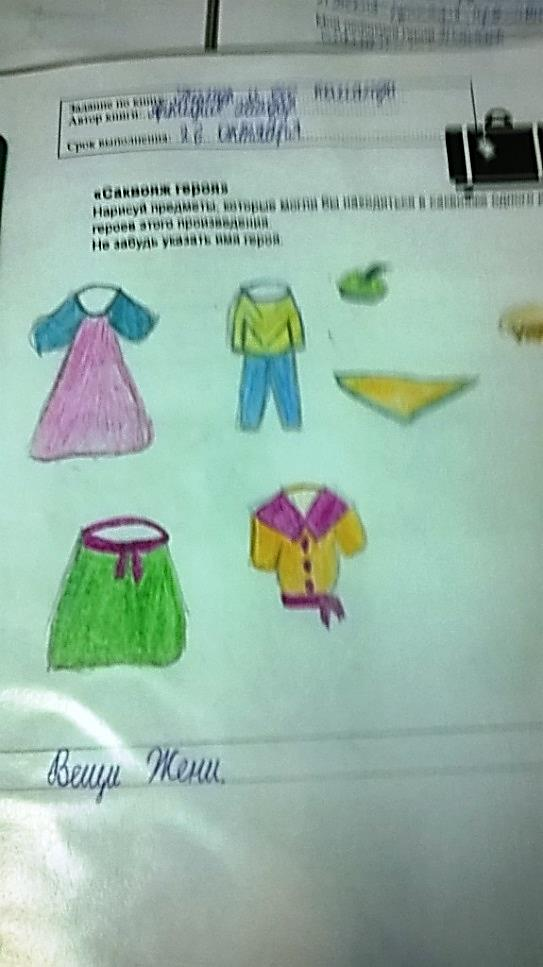 Задание по книге: Тимур и его команда
Автор книги: Аркадия Гайдар
Срок выполнения: 26 октября
«Саквояж героя»
Нарисуй предметы, которые могли бы находиться в саквояже одного
героев этого произведения.
Не забудь указать имя героя.
Вещи Жени.